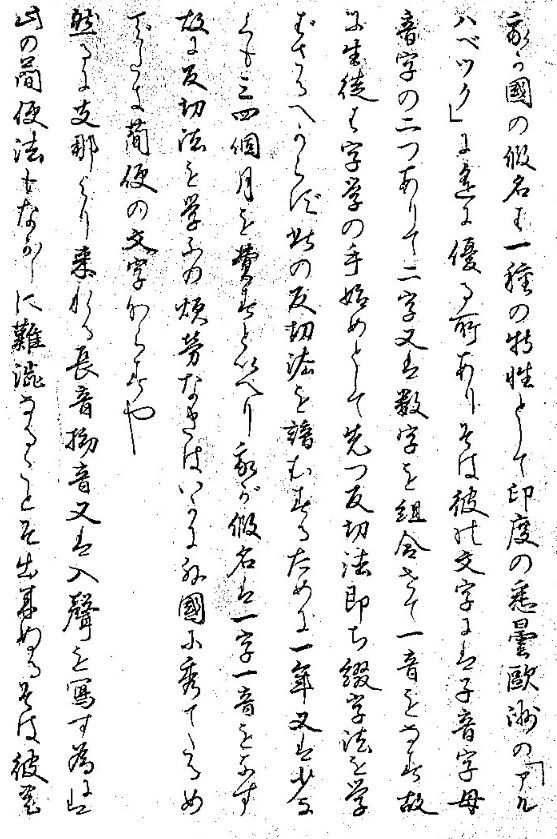 我が國の假名は一種の特性として印度の悉曇歐洲の「アル
ハベツク」に遙に優る所ありそは彼の文字には子音字母
音字の二つありて二字又は数字を組合せて一音をなす故
に生徒は字学の手始めとして先つ反切法即ち綴字法を学
ばさるへからず此の反切法を諳むするために一年又は少な
くも三四個月を費すと云へり我が假名は一字一音をなす
故に反切法を学ふの煩劳なきはいかに外國に秀てたるめ
てたき簡便の文字ならすや
然るに支那より来れる長音拗音又は入聲を寫す為には
此の簡便法もなか〱に難澁なることそ出来ぬるそは彼